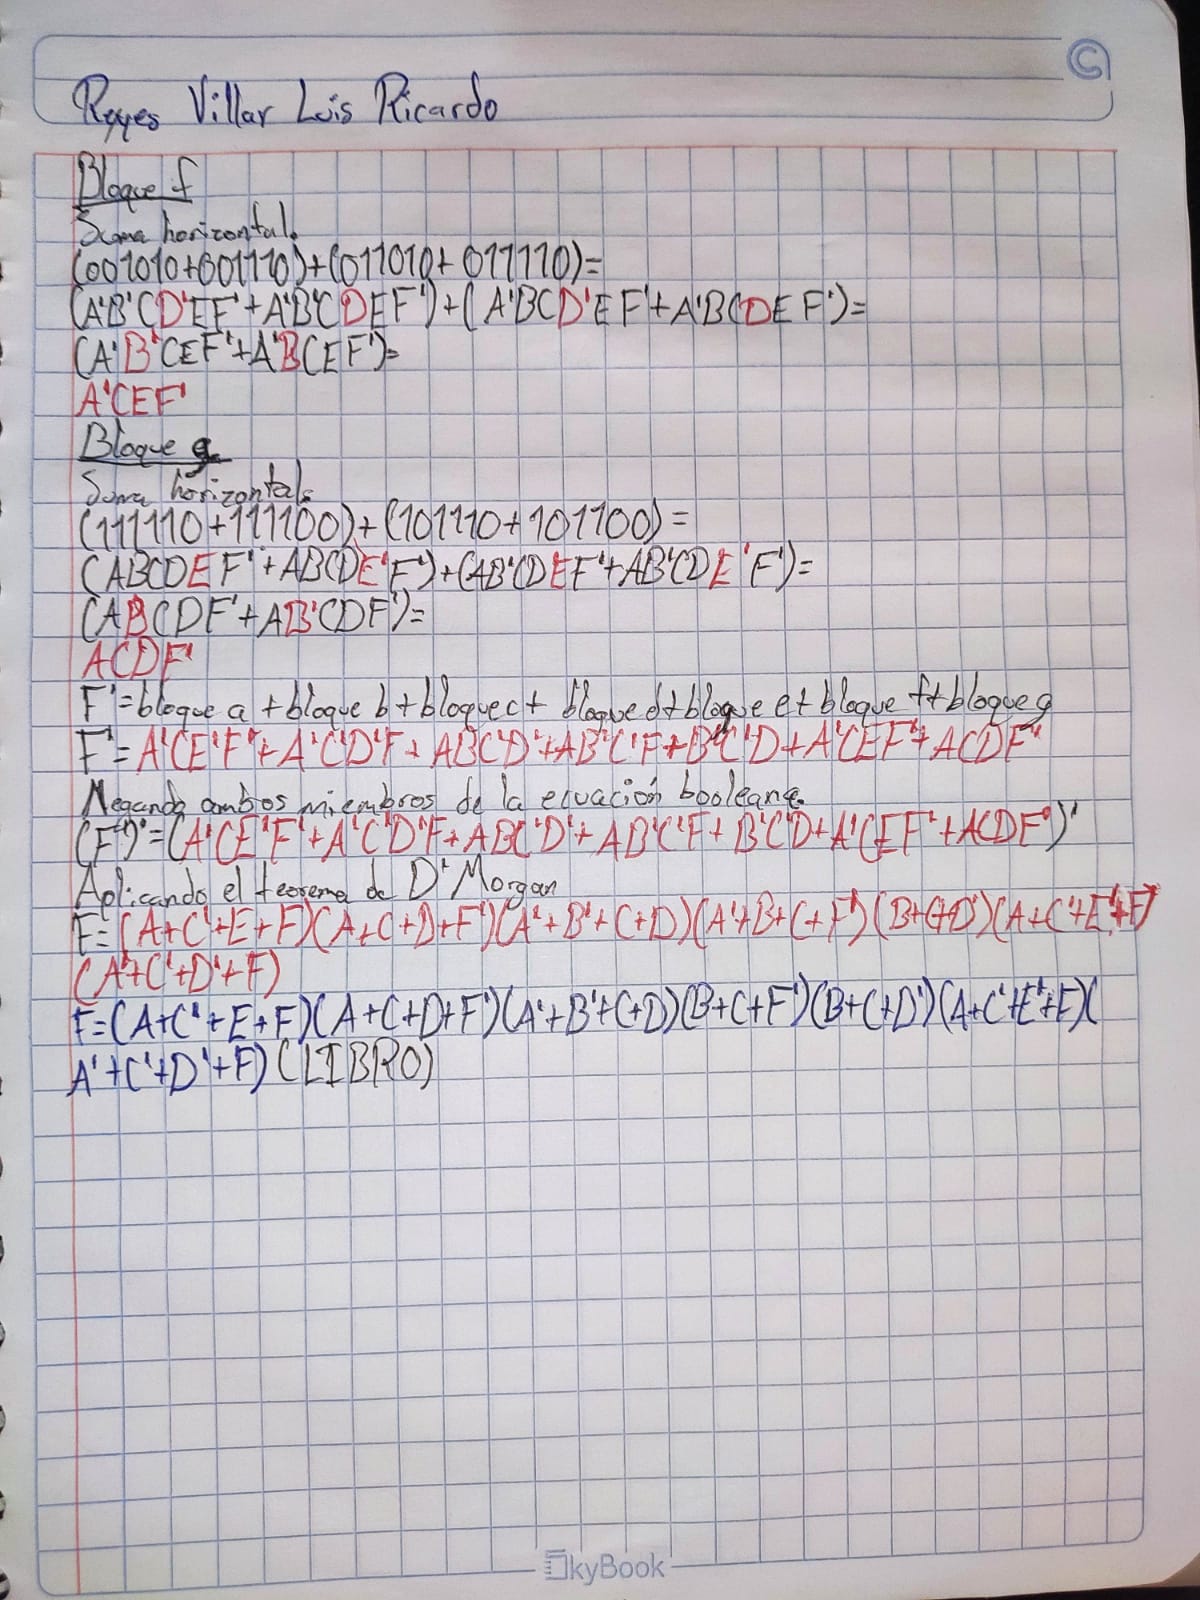 Reyes Villar Luis Ricardo
Bloque f
Suma horizontal.
(001010+001110)+(011010+011110)=
(A'B'CD'EF'+A'B'CDEF')+(A'BCD'EF'+A'BCDEF')=
(A'B'CEF'+A'BCEF')=
A'CEF'
Bloque g
Suma horizontal.
(111110+111100)+(101110+101100)=
(ABCDEF'+ABCDE'F')+(AB'CDEF'+AB'CDE'F')=
(ABCDF'+AB'CDF')=
ACDF'
F'=bloque a +bloque b+bloque c+ bloque d+bloque e+bloque f+bloque g
F'=A'CE'F'+A'C'D'F+ABC'D'+AB'C'F+B'C'D+A'CEF'+ACDF'
Negando ambos miembros de la ecuación booleana.
(F')'=(A'CE'F'+A'C'D'F+ABC'D'+AB'C'F+B'C'D+A'CEF'+ACDF')'
Aplicando el teorema de D'Morgan
F=(A+C'+E+F)(A+C+D+F')(A'+B'+C+D)(A'+B+C+F')(B+C+D')(A+C'+E'+F)
(A'+C'+D'+F)
F=(A+C'+E+F)(A+C+D+F')(A'+B'+C+D)(B+C+F')(B+C+D')(A+C'+E'+F)(
A'+C'+D'+F) (LIBRO)
SkyBook